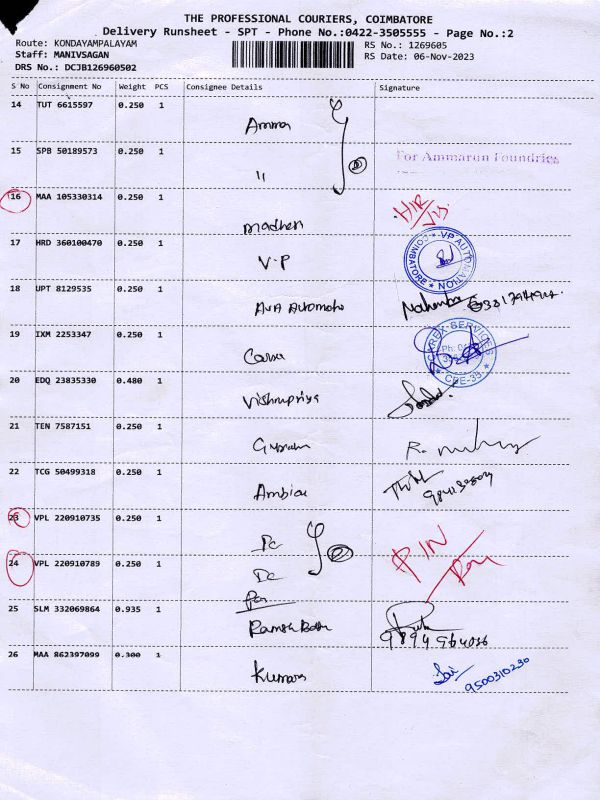 THE PROFESSIONAL COURIERS, COIMBATORE
Delivery Runsheet - SPT - Phone No.:0422-3505555 - Page No.:2
Route: KONDAYAMPALAYAM RS No.: 1269605
Staff: MANIVSAGAN RS Date: 06-Nov-2023
DRS No.: DCJB126960502
S No Consignment No Weight PCS Consignee Details Signature
14 TUT 6615597 0.250 1
Amma
15 SPB 50189573 0.250 1 For Ammarun Foundries
"
16 MAA 105330314 0.250 1
17 HRD 360100470 0.250 1
V.P VP AUTOMATION * COIMBATORE *
18 UPT 8129535 0.250 1
AVA Automoto
19 IXM 2253347 0.250 1
CAREX SERVICES * CBE-35 *
20 EDQ 23835330 0.480 1
Vishnupriya
21 TEN 7587151 0.250 1
22 TCG 50499318 0.250 1
Ambica
23 VPL 220910735 0.250 1
24 VPL 220910789 0.250 1
25 SLM 332069864 0.935 1
26 MAA 862397099 0.300 1
Kumara
9500310230